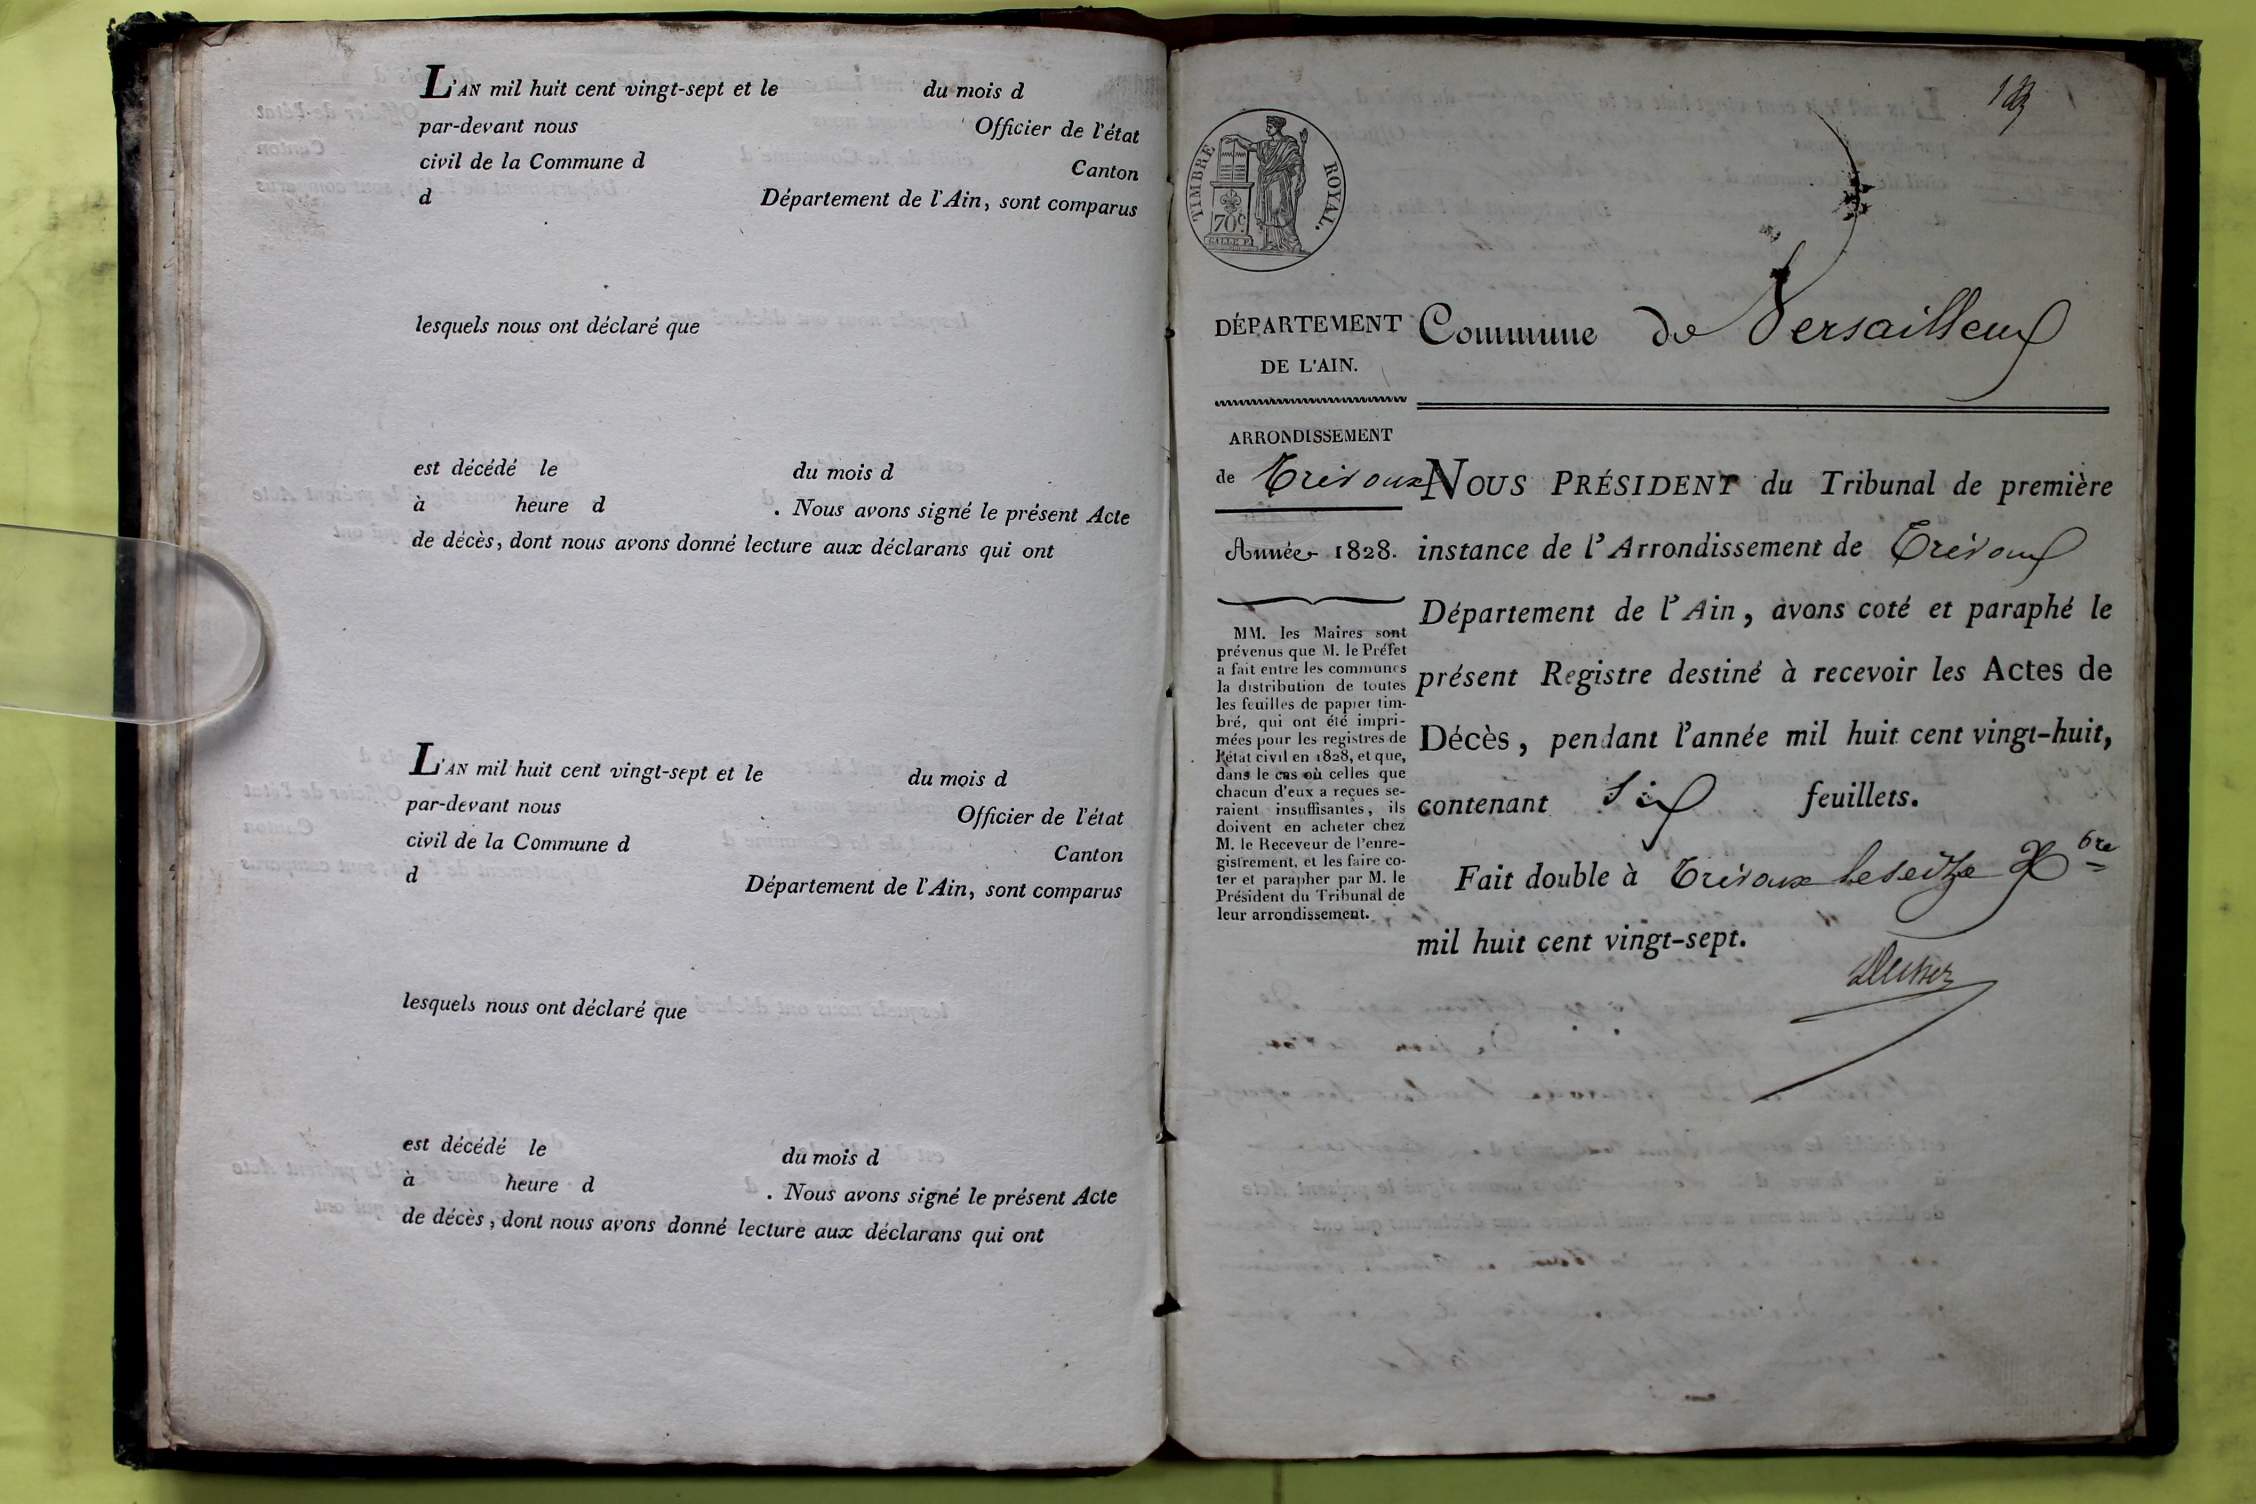 L'AN mil huit cent vingt-sept et le du mois d
par-devant nous Officier de l'état
civil de la Commune d Canton
d Département de l'Ain, sont comparus
lesquels nous ont déclaré que
est décédé le du mois d
à heure d . Nous avons signé le présent Acte
de décès, dont nous avons donné lecture aux déclarans qui ont
L'AN mil huit cent vingt-sept et le du mois d
par-devant nous Officier de l'état
civil de la Commune d Canton
d Département de l'Ain, sont comparus
lesquels nous ont déclaré que
est décédé le du mois d
à heure d . Nous avons signé le présent Acte
de décès, dont nous avons donné lecture aux déclarans qui ont
TIMBRE ROYAL.
70c
DÉPARTEMENT
DE L'AIN.
ARRONDISSEMENT
de Trévoux
Année 1828.
MM. les Maires sont
prévenus que M. le Préfet
a fait entre les communes
la distribution de toutes
les feuilles de papier tim-
bré, qui ont été impri-
mées pour les registres de
l'état civil en 1828, et que,
dans le cas où celles que
chacun d'eux a reçues se-
raient insuffisantes, ils
doivent en acheter chez
M. le Receveur de l'enre-
gistrement, et les faire co-
ter et parapher par M. le
Président du Tribunal de
leur arrondissement.
Commune de Versailleux
NOUS PRÉSIDENT du Tribunal de première
instance de l'Arrondissement de Trévoux
Département de l'Ain, avons coté et paraphé le
présent Registre destiné à recevoir les Actes de
Décès, pendant l'année mil huit cent vingt-huit,
contenant Six feuillets.
Fait double à Trévoux le seize Xbre
mil huit cent vingt-sept.